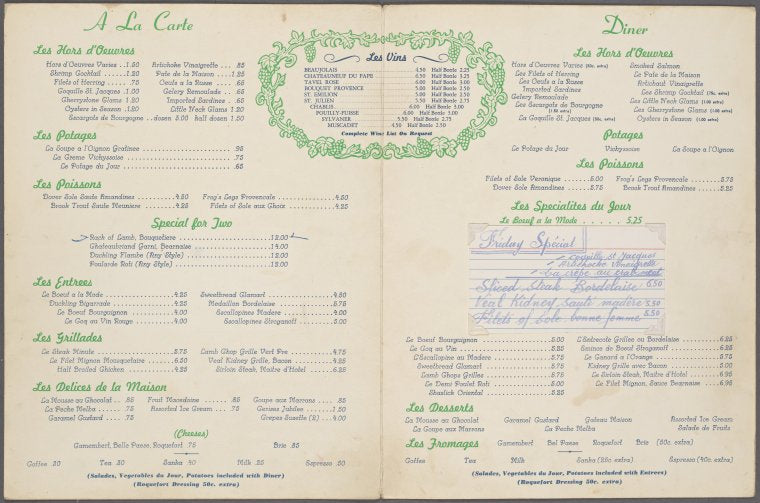 A La Carte
Les Hors d'Oeuvres
Hors d'Oeuvres Varies ..1.50 Artichoke Vinaigrette ... .85
Shrimp Cocktail .......1.20 Pate de la Maison ....1.25
Filets of Herring ..... .75 Oeufs a la Russe ..... .75
Coquille St. Jacques ...1.00 Celery Remoulade .... .65
Cherrystone Clams ....1.20 Imported Sardines .... .60
Oysters in Season .....1.20 Little Neck Clams ....1.20
Escargots de Bourgogne ..dozen 3.00 half dozen 1.50
Les Potages
La Soupe a l'Oignon Gratinee .95
La Creme Vichyssoise .75
Le Potage du Jour .65
Les Poissons
Dover Sole Saute Amandines 4.50 Frog's Legs Provencale 4.50
Brook Trout Saute Meuniere 4.25 Filets of Sole aux Choix 4.25
Special for Two
Rack of Lamb, Bouquetiere 12.00
Chateaubriand Garni, Bearnaise 14.00
Duckling Flambe (Any Style) 12.00
Poularde Roti (Any Style) 12.00
Les Entrees
Le Boeuf a la Mode 4.25 Sweetbread Glamart 4.50
Duckling Bigarrade 4.25 Medaillon Bordelaise 5.75
Le Boeuf Bourguignon 4.00 Escallopines Madere 4.00
Le Coq au Vin Rouge 4.25 Escallopines Stroganoff 5.00
Les Grillades
Le Steak Minute 5.75 Lamb Chop Grille Vert Pre 4.75
Le Filet Mignon Mousquetaire 6.50 Veal Kidney Grille, Bacon 4.25
Half Broiled Chicken 4.25 Sirloin Steak, Maitre d'Hotel 6.25
Les Delices de la Maison
La Mousse au Chocolat .. .85 Fruit Macedoine .... .85 Coupe aux Marrons .... .85
La Peche Melba ..... .75 Assorted Ice Cream .. .75 Cerises Jubilee ......1.50
Caramel Custard .... .75 Crepes Suzette (2) ...4.00
(Cheeses)
Camembert, Belle Paese, Roquefort .75 Brie .85
Coffee .20 Tea .30 Sanka .40 Milk .25 Espresso .50
(Salades, Vegetables du Jour, Potatoes included with Diner)
(Roquefort Dressing 50c. extra)
Les Vins
BEAUJOLAIS 4.50 Half Bottle 2.25
CHATEAUNEUF DU PAPE 6.50 Half Bottle 3.25
TAVEL ROSE 6.00 Half Bottle 3.00
BOUQUET PROVENCE 5.00 Half Bottle 2.50
ST. EMILION 5.00 Half Bottle 2.50
ST. JULIEN 5.50 Half Bottle 2.75
CHABLIS 6.00 Half Bottle 3.00
POUILLY-FUISSE 6.00 Half Bottle 3.00
SYLVANER 5.50 Half Bottle 2.75
MUSCADET 4.50 Half Bottle 2.50
Complete Wine List On Request
Diner
Les Hors d'Oeuvres
Hors d'Oeuvres Varies (50c. extra) Smoked Salmon
Les Filets of Herring Le Pate de la Maison
Les Oeufs a la Russe Artichaut Vinaigrette
Imported Sardines Les Shrimp Cocktail (75c. extra)
Celery Remoulade Les Little Neck Clams (1.00 extra)
Les Escargots de Bourgogne (1.00 extra) Les Cherrystone Clams (1.00 extra)
La Coquille St. Jacques (50c. extra) Oysters in Season (1.00 extra)
Potages
Le Potage du Jour Vichyssoise La Soupe a l'Oignon
Les Poissons
Filets of Sole Veronique 5.00 Frog's Legs Provencale 5.75
Dover Sole Amandines 5.75 Brook Trout Amandines 5.25
Les Specialites du Jour
Le Boeuf a la Mode . . . . . . 5.25
Friday Spécial
coquille st Jacques
Artichocke Vinaigrette
La crêpe au crabmeat
Sliced Steak Bordelaise 6.50
Veal Kidney sauté madère 5.50
Filets of Sole bonne femme 5.50
Le Boeuf Bourguignon 5.00 L'Entrecote Grillee au Bordelaise 6.25
Le Coq au Vin 5.25 Emince de Boeuf Stroganoff 5.00
L'Escallopine au Madere 5.75 Le Canard a l'Orange 5.75
Sweetbread Glamart 5.25 Kidney Grille avec Bacon 5.00
Lamb Chops Grilles 5.75 Le Sirloin Steak, Maitre d'Hotel 6.95
Le Demi Poulet Roti 5.00 Le Filet Mignon, Sauce Bearnaise 6.95
Shaslick Oriental 5.25
Les Desserts
La Mousse au Chocolat Caramel Custard Gateau Maison Assorted Ice Cream
La Coupe aux Marrons La Peche Melba Salade de Fruits
Les Fromages Camembert Bel Paese Roquefort Brie (50c. extra)
Coffee Tea Milk Sanka (25c extra) Espresso (40c. extra)
(Salades, Vegetables du Jour, Potatoes included with Entrees)
(Roquefort Dressing 50c. extra)